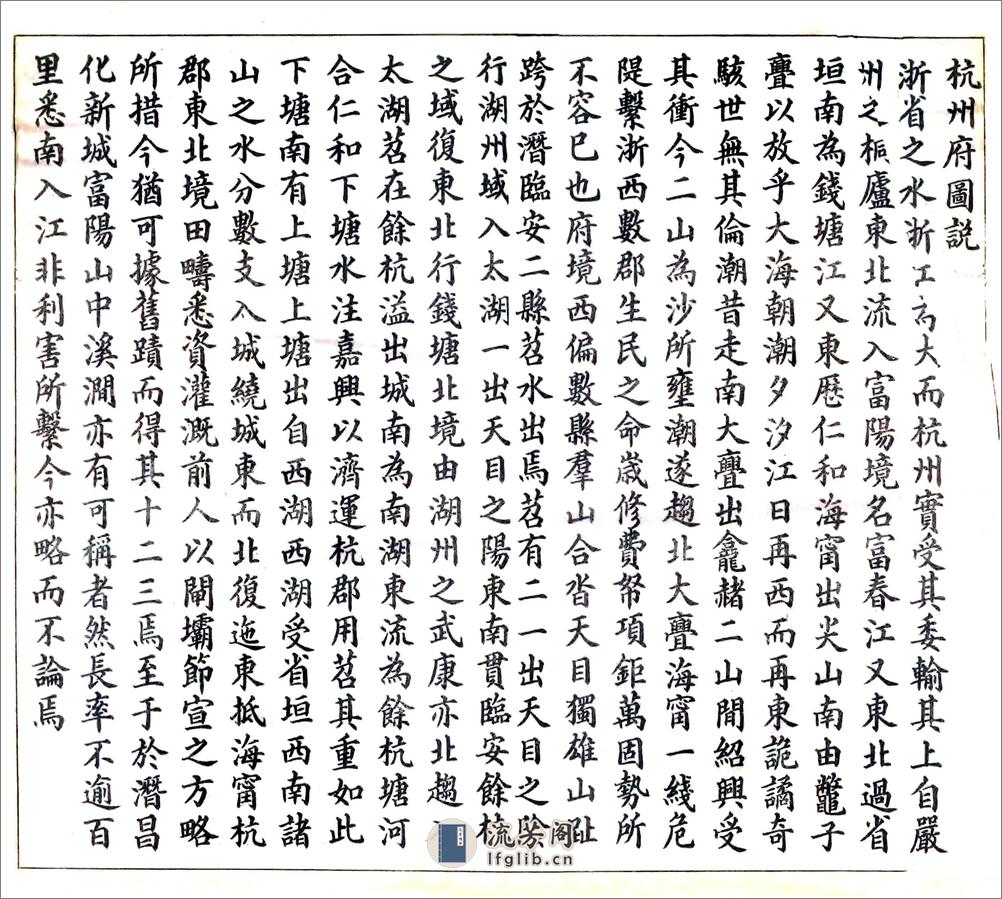 杭州府圖說
浙省之水浙江為大而杭州實受其委輸其上自嚴
州之桐廬東北流入富陽境名富春江又東北過省
垣南為錢塘江又東歷仁和海甯出尖山南由鼈子
亹以放乎大海朝潮夕汐江日再西而再東詭譎奇
駭世無其倫潮昔走南大亹出龕赭二山間紹興受
其衝今二山為沙所壅潮遂趨北大亹海甯一綫危
隄繫浙西數郡生民之命歲修費帑項鉅萬固勢所
不容已也府境西偏數縣羣山合沓天目獨雄山趾
跨於潛臨安二縣苕水出焉苕有二一出天目之陰
行湖州域入太湖一出天目之陽東南貫臨安餘杭
之域復東北行錢塘北境由湖州之武康亦北趨
太湖苕在餘杭溢出城南為南湖東流為餘杭塘河
合仁和下塘水注嘉興以濟運杭郡用苕其重如此
下塘南有上塘上塘出自西湖西湖受省垣西南諸
山之水分數支入城繞城東而北復迤東抵海甯杭
郡東北境田疇悉資灌溉前人以閘壩節宣之方略
所措今猶可據舊蹟而得其十二三焉至于於潛昌
化新城富陽山中溪澗亦有可稱者然長率不逾百
里悉南入江非利害所繫今亦略而不論焉
流芬阁
lfglib.cn